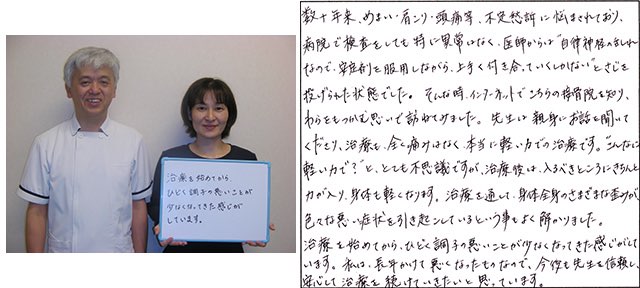 治療を始めてから、
ひどく調子の悪いことが
少なくなってきた感じが
しています。
数十年来、めまい・肩こり・頭痛等、不定愁訴に悩まされており、
病院で検査をしても特に異常はなく、医師からは"自律神経の乱れ
なので、安定剤を服用しながら、上手く付き合っていくしかない"とさじを
投げられた状態でした。そんな時、インターネットでこちらの接骨院を知り、
わらをもつかむ思いで訪ねてみました。先生は親身にお話を聞いて
くださり、治療も、全く痛みはなく、本当に軽い力での治療です。"こんなに
軽い力で?"と、とても不思議ですが、治療後は、入るべきところにきちんと
力が入り、身体も軽くなります。治療を通して、身体全身のさまざまな歪みが
色々な悪い症状を引き起こしているという事もよく解かりました。
治療を始めてから、ひどく調子の悪いことが少なくなってきた感じがして
います。私は、長年かけて悪くなったものなので、今後も先生を信頼し、
安心して治療を続けていきたいと思っています。